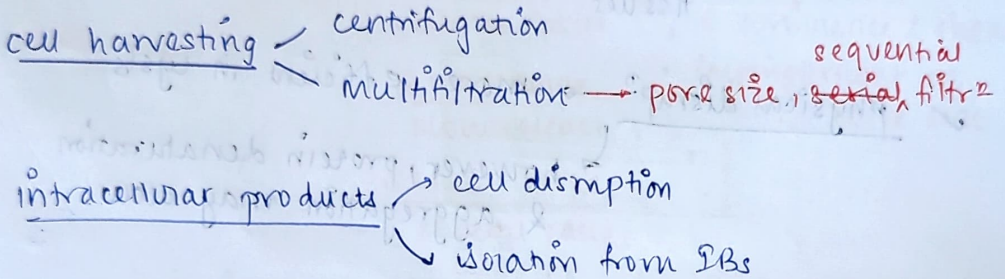 cell harvesting centrifugation
sequential
multifiltration → pore size, serial filtrn
intracellular products → cell disruption
→ isolation from IBs